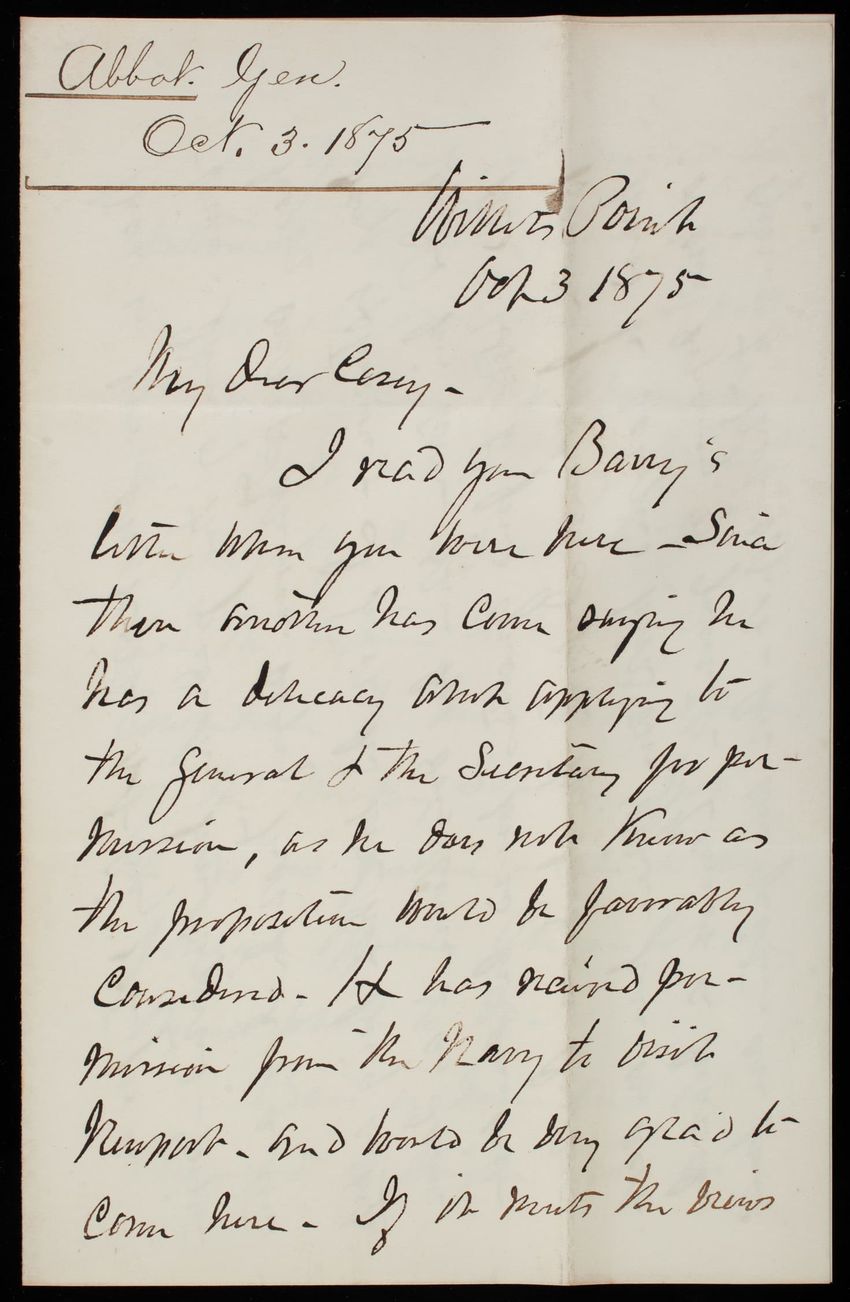 Abbot. Gen.
Oct. 3. 1875
Willets Point
Oct 3 1875
My Dear Casey -
I read you Barry's
letter when you were here - Since
then another has come saying he
has a delicacy about applying to
the General & the Secretary for per-
mission, as he does not know as
the proposition would be favorably
Considered - He has received per-
mission from the Navy to visit
Newport - and would be very glad to
Come here - If it meets the views